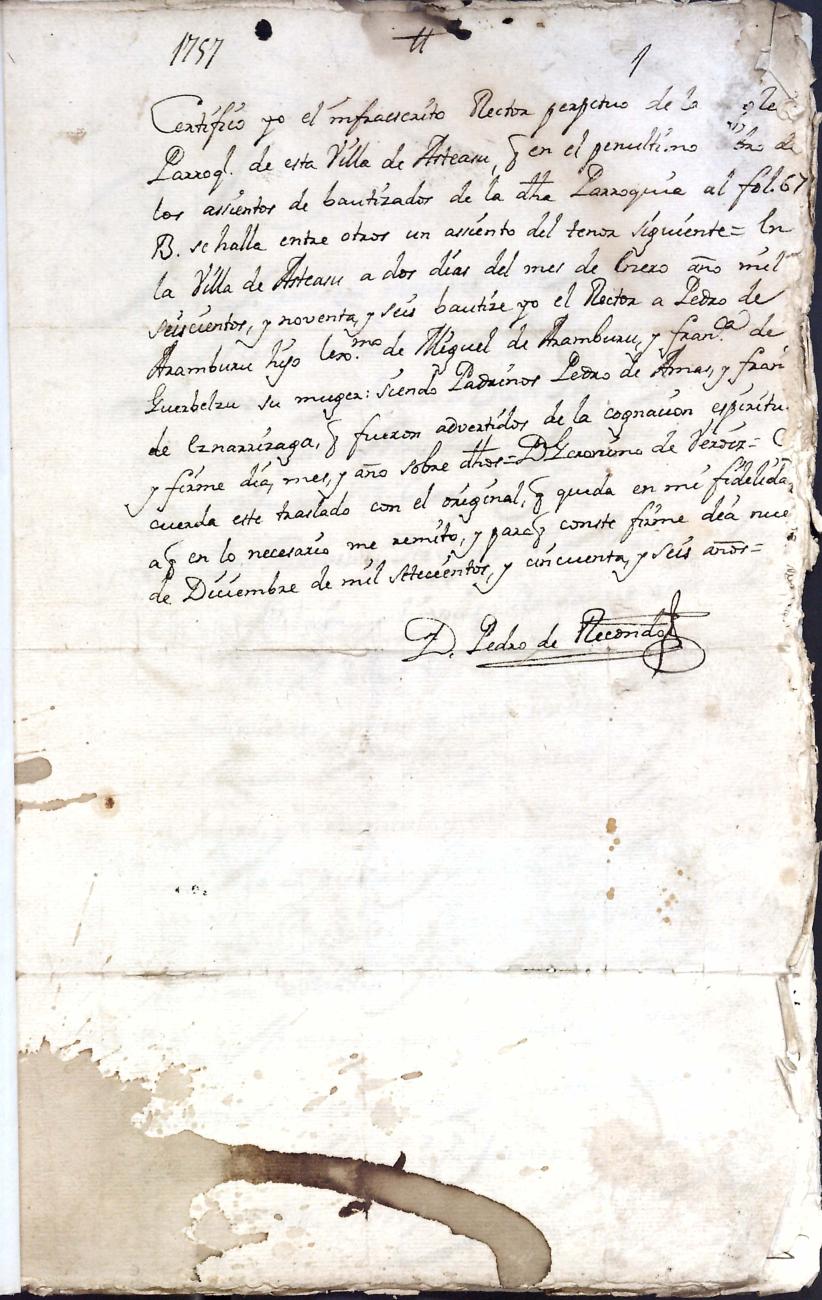 1757
1
Certifico yo el infraescrito Rector perpetuo de la
Parroql. de esta Villa de Asteasu, q̃ en el penultimo de
los assientos de bautizados de la dha Parroquia al fol. 67
B. se halla entre otros un assiento del tenor siguiente = En
la Villa de Asteasu a dos dias del mes de Enero año mil
seiscientos, y noventa, y seis bautize yo el Rector a Pedro de
Aramburu hijo lexmo. de Miguel de Aramburu, y Franca. de
su muger: siendo Padrinos Pedro de Amas, y Fran
de Eznarrizaga, q̃ fueron advertidos de la cognacion espiritu
y firme dia, mes, y año sobre dhos = Dn. Geronimo de =
cuerda este traslado con el original, q̃ queda en mi fidelida
aq̃ en lo necesario me remito, y paraq̃ conste firme dia nue
de Diciembre de mil setecientos, y cincuenta, y seis años =
D. Pedro de Recondo